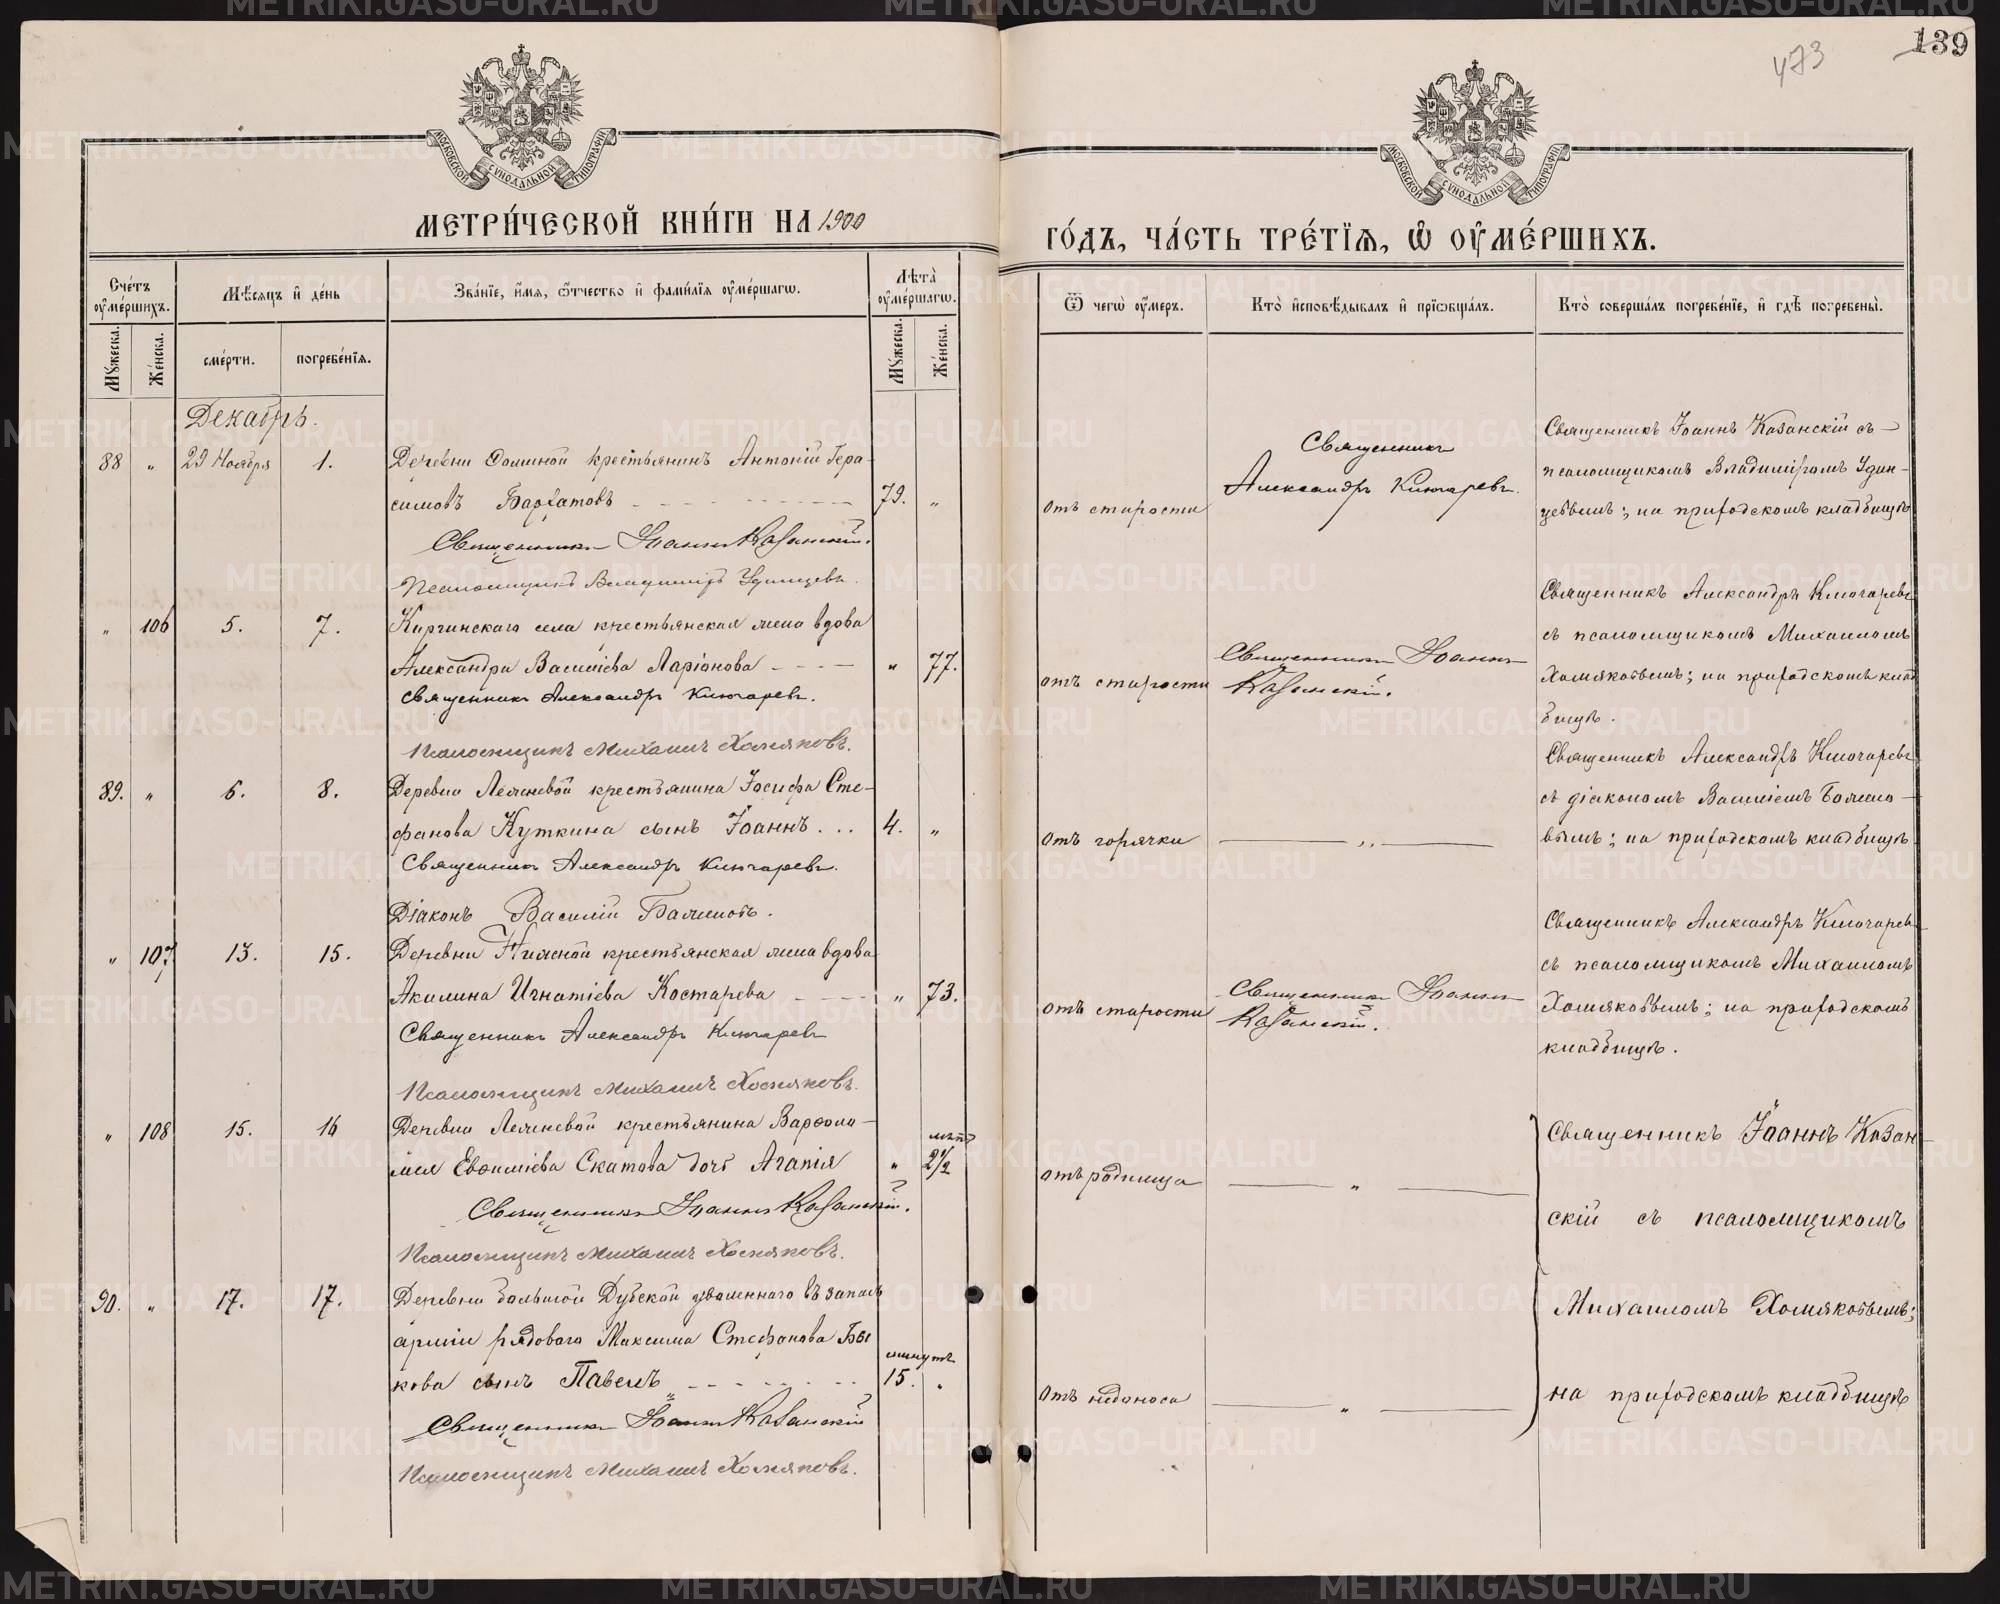 139
473
МОСКОВСКОЙ СѴНОДАЛЬНОЙ ТИПОГРАФІИ
МОСКОВСКОЙ СѴНОДАЛЬНОЙ ТИПОГРАФІИ
МЕТРИ́ЧЕСКОЙ КНИ́ГИ НА 1900
ГО́ДЪ, ЧА́СТЬ ТРЕ́ТІЯ, Ѡ҆ ОУ҆МЕ́РШИХЪ.
Сче́тъ оу҆ме́ршихъ.
Му́жеска.
Же́нска.
Мѣ́сяцъ и҆ де́нь
сме́рти.
погребе́нїя.
Зва́нїе, и҆́мя, ѻ҆́тчество и҆ фами́лїя оу҆ме́ршагѡ.
Лѣ́та оу҆ме́ршагѡ.
Му́жеска.
Же́нска.
Ѿ чегѡ̀ оу҆́меръ.
Кто̀ и҆сповѣ́дывалъ и҆ прїѡбща́лъ.
Кто̀ соверша́лъ погребе́нїе, и҆ гдѣ̀ погребены̀.
Декабрь.
88 „ 29 Ноября 1. Деревни Соминой крестьянинъ Антоній Гера-
симовъ Бархатовъ 79. „
Священникъ Іоаннъ Казанскій.
Псаломщикъ Владиміръ Удинцевъ.
отъ старости
Священникъ
Александръ Ключаревъ.
Священникъ Іоаннъ Казанскій съ
псаломщикомъ Владиміромъ Удин-
цевымъ; на приходскомъ кладбищѣ
„ 106 5. 7. Киргинскаго села крестьянская жена вдова
Александра Василіева Ларіонова „ 77.
Священникъ Александръ Ключаревъ.
Псаломщикъ Михаилъ Хомяковъ.
отъ старости
Священникъ Іоаннъ
Казанскій.
Священникъ Александръ Ключаревъ
съ псаломщикомъ Михаиломъ
Хомяковымъ; на приходскомъ клад
бищѣ.
89. „ 6. 8. Деревни Леженевой крестьянина Іосифа Сте-
фанова Куткина сынъ Іоаннъ... 4. „
Священникъ Александръ Ключаревъ.
Діаконъ Василій
отъ горячки
„
Священникъ Александръ Ключаревъ
съ діакономъ Василіемъ
вымъ; на приходскомъ кладбищѣ
„ 107 13. 15. Деревни Нижной крестьянская жена вдова
Акилина Игнатіева Костарева „ 73.
Священникъ Александръ Ключаревъ
Псаломщикъ Михаилъ Хомяковъ.
отъ старости
Священникъ Іоаннъ
Казанскій.
Священникъ Александръ Ключаревъ
съ псаломщикомъ Михаиломъ
Хомяковымъ; на приходскомъ
кладбищѣ.
„ 108 15. 16 Деревни Леженевой крестьянина Варѳоло-
мея Евѳиміева Скатова дочь Агапія „ лѣтъ 2½
Священникъ Іоаннъ Казанскій.
Псаломщикъ Михаилъ Хомяковъ.
отъ родимца
„
Священникъ Іоаннъ Казан-
скій съ псаломщикомъ
Михаиломъ Хомяковымъ;
на приходскомъ кладбищѣ
90. „ 17. 17. Деревни Большой Дубской уволеннаго въ запасъ
арміи рядового Максима Стефанова Бы
кова сынъ Павелъ минутъ 15. „
Священникъ Іоаннъ Казанскій
Псаломщикъ Михаилъ Хомяковъ.
отъ недоноса
„
METRIKI.GASO-URAL.RU